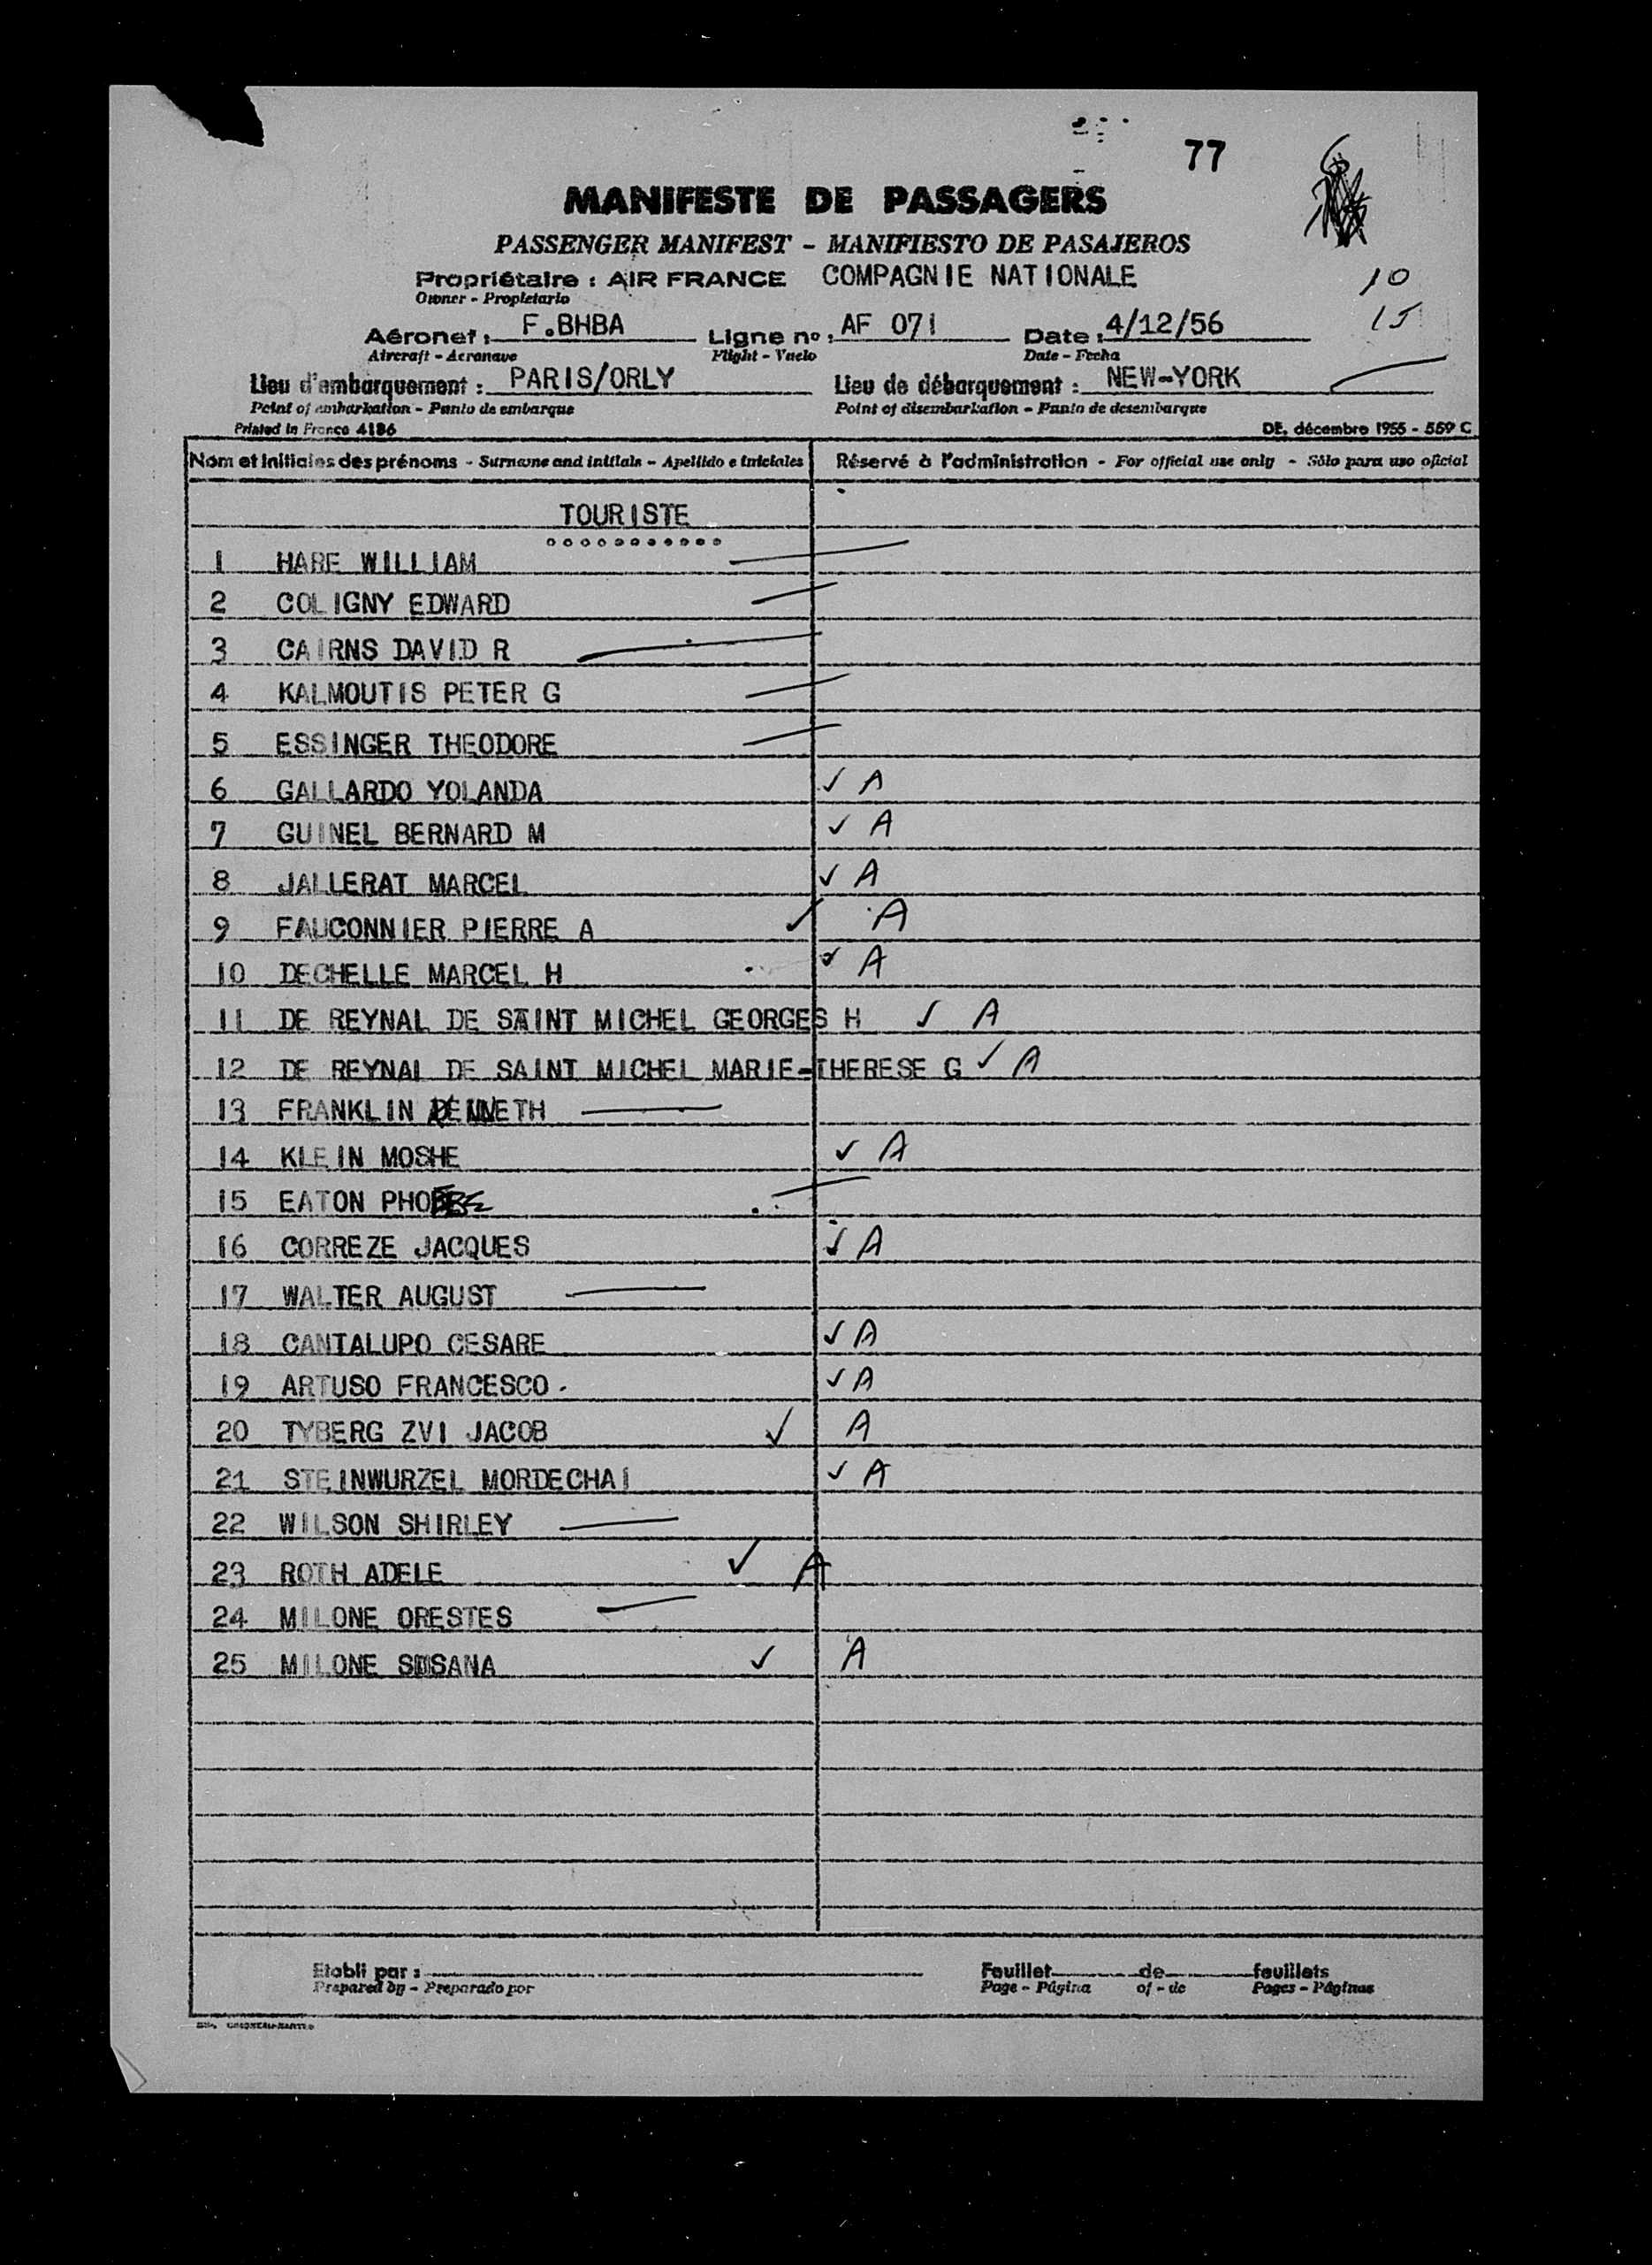 77
MANIFESTE DE PASSAGERS
PASSENGER MANIFEST - MANIFIESTO DE PASAJEROS
Propriétaire : AIR FRANCE COMPAGNIE NATIONALE
Owner - Propietario
10
Aéronef : F.BHBA Ligne nº : AF 071 Date : 4/12/56
15
Aircraft - Aeronave Flight - Vuelo Date - Fecha
Lieu d'embarquement : PARIS/ORLY Lieu de débarquement : NEW-YORK
Point of embarkation - Punto de embarque Point of disembarkation - Punto de desembarque
Printed in France 4186 DE. décembre 1955 - 559 C
Nom et initiales des prénoms - Surname and initials - Apellido e iniciales Réservé à l'administration - For official use only - Sólo para uso oficial
TOURISTE
1 HARE WILLIAM
2 COLIGNY EDWARD
3 CAIRNS DAVID R
4 KALMOUTIS PETER G
5 ESSINGER THEODORE
6 GALLARDO YOLANDA ✓ A
7 GUINEL BERNARD M ✓ A
8 JALLERAT MARCEL ✓ A
9 FAUCONNIER PIERRE A ✓ A
10 DECHELLE MARCEL H ✓ A
11 DE REYNAL DE SAINT MICHEL GEORGES H ✓ A
12 DE REYNAL DE SAINT MICHEL MARIE-THERESE G ✓ A
13 FRANKLIN
14 KLEIN MOSHE ✓ A
15 EATON PHOEBE
16 CORREZE JACQUES ✓ A
17 WALTER AUGUST
18 CANTALUPO CESARE ✓ A
19 ARTUSO FRANCESCO ✓ A
20 TYBERG ZVI JACOB ✓ A
21 STEINWURZEL MORDECHAI ✓ A
22 WILSON SHIRLEY
23 ROTH ADELE ✓ A
24 MILONE ORESTES
25 MILONE SUSANA ✓ A
Etabli par :
Prepared by - Preparado por
Feuillet de feuillets
Page - Página of - de Pages - Páginas